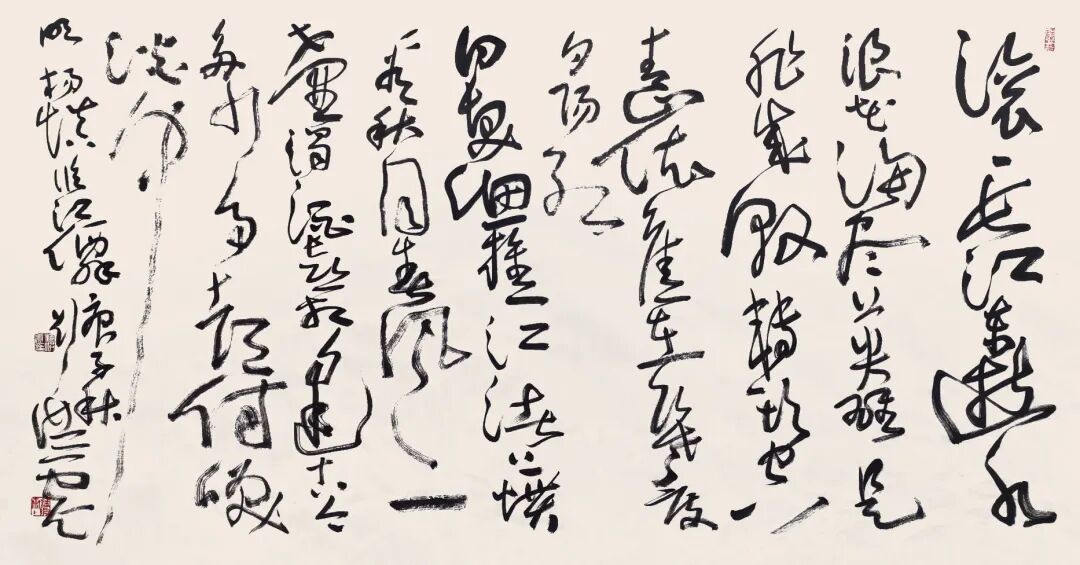 滚滚长江东逝水
浪花淘尽英雄是
非成败轉头空
青山依舊在幾度
夕阳红
白发渔樵江渚上惯
看秋月春風一
壶濁酒喜相逢古今
多少事都付笑
谈中
明杨慎临江仙 庚子秋
刘